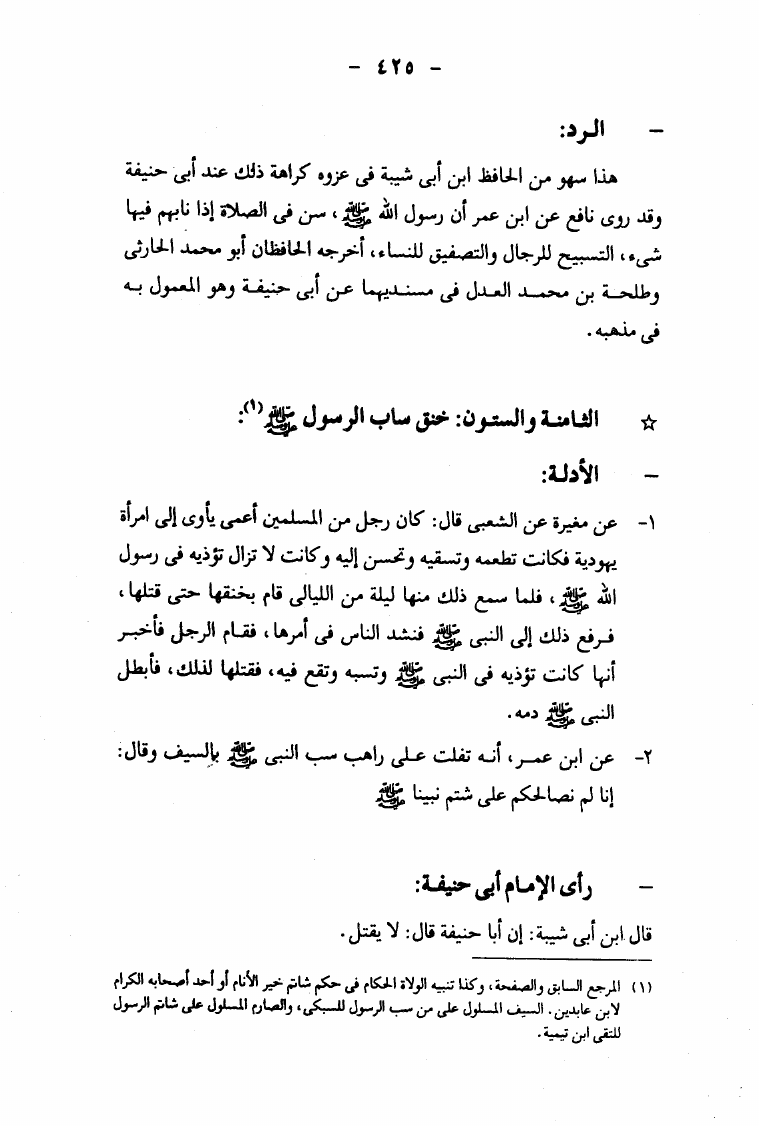 - ٤٢٥ -
- الرد:
هذا سهو من الحافظ ابن أبى شيبة فى عزوه كراهة ذلك عند أبى حنيفة
وقد روى نافع عن ابن عمر أن رسول الله ﷺ، سن فى الصلاة إذا نابهم فيها
شىء، التسبيح للرجال والتصفيق للنساء، أخرجه الحافظان أبو محمد الحارثى
وطلحة بن محمد العدل فى مسنديهما عن أبى حنيفة وهو المعمول به
فى مذهبه.
☆ الثامنة والستون: خنق ساب الرسول ﷺ(١):
- الأدلة:
١- عن مغيرة عن الشعبى قال: كان رجل من المسلمين أعمى يأوى إلى امرأة
يهودية فكانت تطعمه وتسقيه وتحسن إليه وكانت لا تزال تؤذيه فى رسول
الله ﷺ، فلما سمع ذلك منها ليلة من الليالى قام بخنقها حتى قتلها،
فرفع ذلك إلى النبى ﷺ فنشد الناس فى أمرها، فقام الرجل فأخبر
أنها كانت تؤذيه فى النبى ﷺ وتسبه وتقع فيه، فقتلها لذلك، فأبطل
النبى ﷺ دمه.
٢- عن ابن عمر، أنه تفلت على راهب سب النبى ﷺ بالسيف وقال:
إنا لم نصالحكم على شتم نبينا ﷺ
- رأى الإمام أبى حنيفة:
قال ابن أبى شيبة: إن أبا حنيفة قال: لا يقتل.
(١) المرجع السابق والصفحة، وكذا تنبيه الولاة الحكام فى حكم شاتم خير الأنام أو أحد أصحابه الكرام
لابن عابدين. السيف المسلول على من سب الرسول للسبكى، والصارم المسلول على شاتم الرسول
للتقى ابن تيمية.